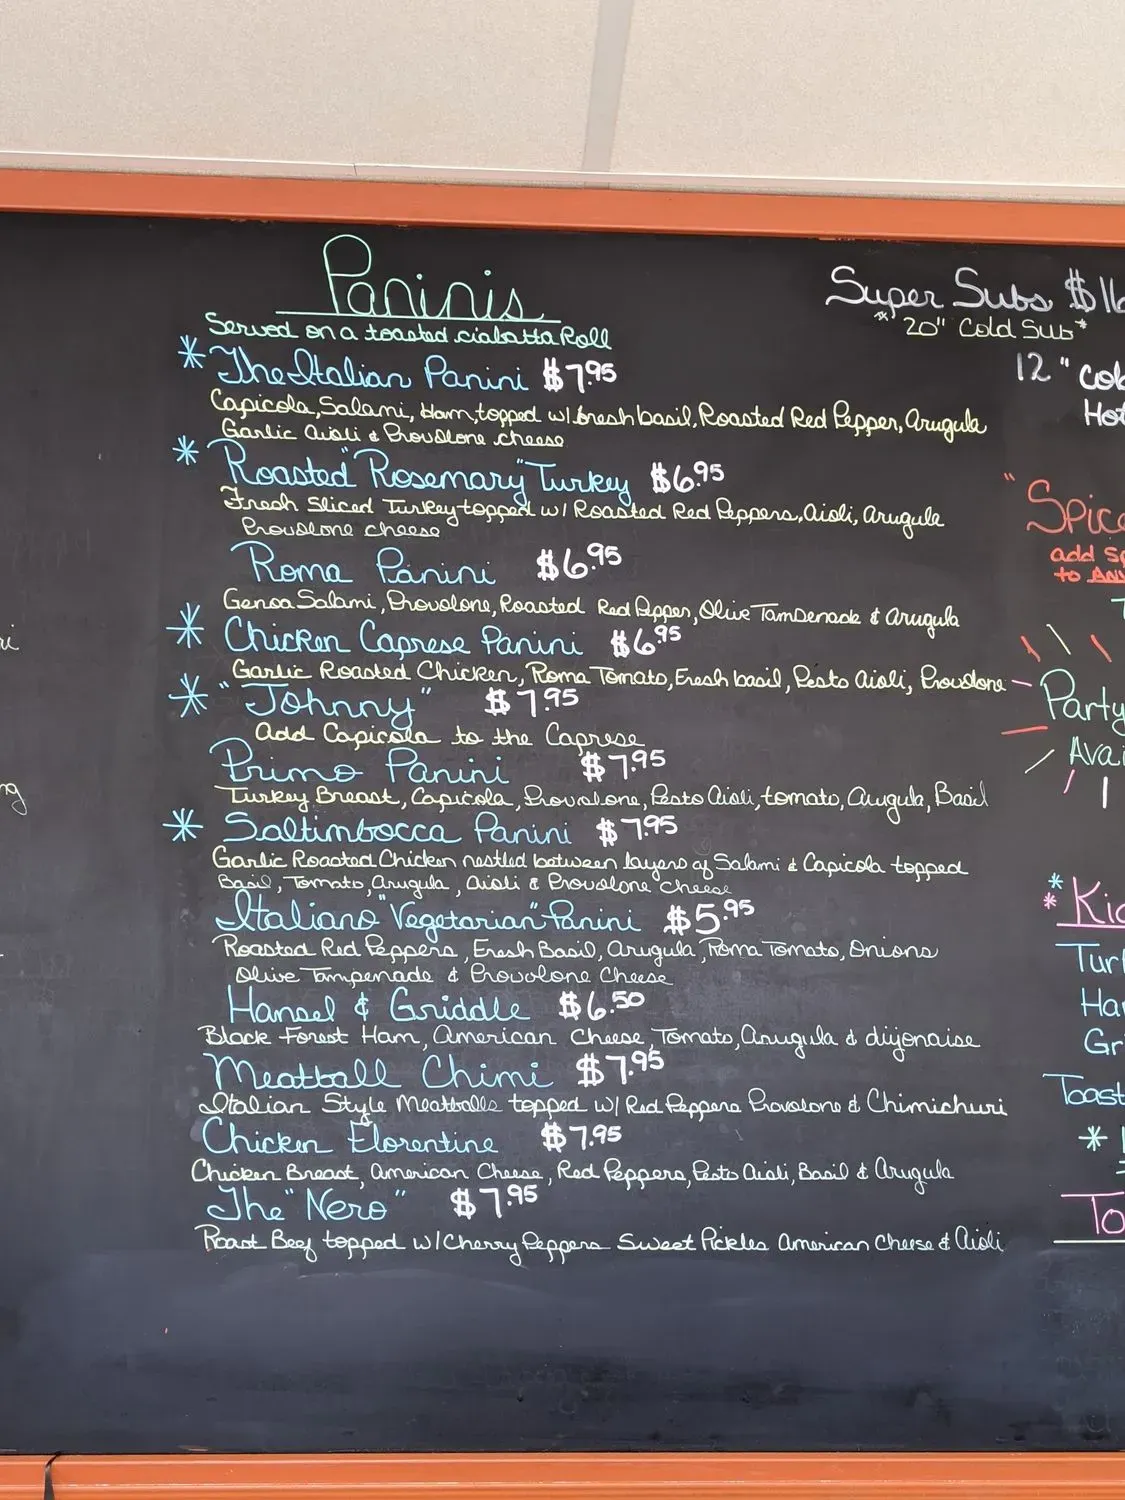 Paninis
Served on a toasted ciabatta Roll
* The Italian Panini $7.95
Capicola, Salami, Ham, topped w/ fresh basil, Roasted Red Pepper, Arugula
Garlic Aioli & Provolone cheese
* Roasted "Rosemary" Turkey $6.95
Fresh Sliced Turkey topped w/ Roasted Red Peppers, Aioli, Arugula
Provolone cheese
Roma Panini $6.95
Genoa Salami, Provolone, Roasted Red Pepper, Olive Tampenade & Arugula
* Chicken Caprese Panini $6.95
Garlic Roasted Chicken, Roma Tomato, Fresh basil, Pesto Aioli, Provolone
* "Johnny" $7.95
Add Capicola to the Caprese
Primo Panini $7.95
Turkey Breast, Capicola, Provolone, Pesto Aioli, tomato, Arugula, Basil
* Saltimbocca Panini $7.95
Garlic Roasted Chicken nestled between layers of Salami & Capicola topped
Basil, Tomato, Arugula, Aioli & Provolone cheese
Italiano "Vegetarian" Panini $5.95
Roasted Red Peppers, Fresh Basil, Arugula, Roma Tomato, Onions
Olive Tampenade & Provolone Cheese
Hansel & Griddle $6.50
Black Forest Ham, American Cheese, Tomato, Arugula & dijonaise
Meatball Chimi $7.95
Italian Style Meatballs topped w/ Red Peppers Provolone & Chimichuri
Chicken Florentine $7.95
Chicken Breast, American Cheese, Red Peppers, Pesto Aioli, Basil & Arugula
The "Nero" $7.95
Roast Beef topped w/ Cherry Peppers Sweet Pickles American Cheese & Aioli
Super Subs $16
*20" Cold Sub*
12" Col
Hot
"Spic
add sp
to Any
Party
Avai
* Ki
*
Tur
Ha
Gr
Toast
*
To